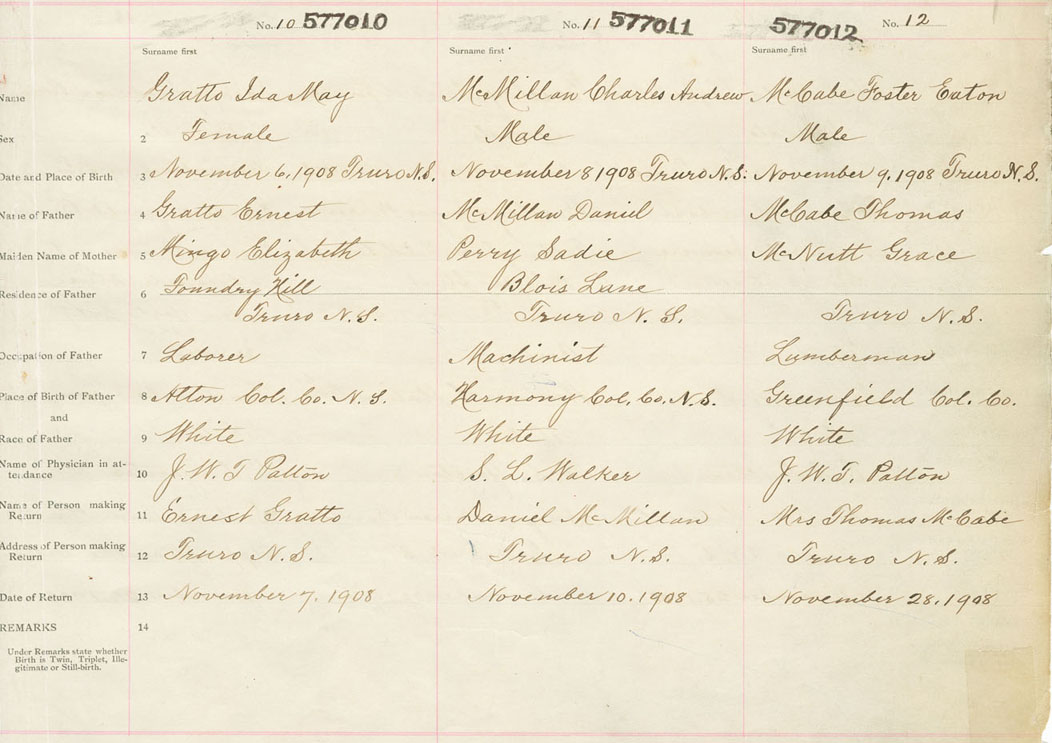 No. 10 577010 No. 11 577011 577012 No. 12
Surname first Surname first Surname first
Name Gratto Ida May McMillan Charles Andrew McCabe Foster Eaton
Sex 2 Female Male Male
Date and Place of Birth 3 November 6, 1908 Truro N.S. November 8 1908 Truro N.S. November 9, 1908 Truro N.S.
Name of Father 4 Gratto Ernest McMillan Daniel McCabe Thomas
Maiden Name of Mother 5 Mingo Elizabeth Perry Sadie McNutt Grace
Residence of Father 6 Foundry Hill Blois Lane
Truro N.S. Truro N.S. Truro N.S.
Occupation of Father 7 Laborer Machinist Lumberman
Place of Birth of Father 8 Alton Col. Co. N.S. Harmony Col. Co. N.S. Greenfield Col. Co.
and
Race of Father 9 White White White
Name of Physician in at-
tendance 10 J. W. T Patton S. L. Walker J. W. T. Patton
Name of Person making
Return 11 Ernest Gratto Daniel McMillan Mrs Thomas McCabe
Address of Person making
Return 12 Truro N.S. Truro N.S. Truro N.S.
Date of Return 13 November 7, 1908 November 10. 1908 November 28. 1908
REMARKS 14
Under Remarks state whether
Birth is Twin, Triplet, Ille-
gitimate or Still-birth.